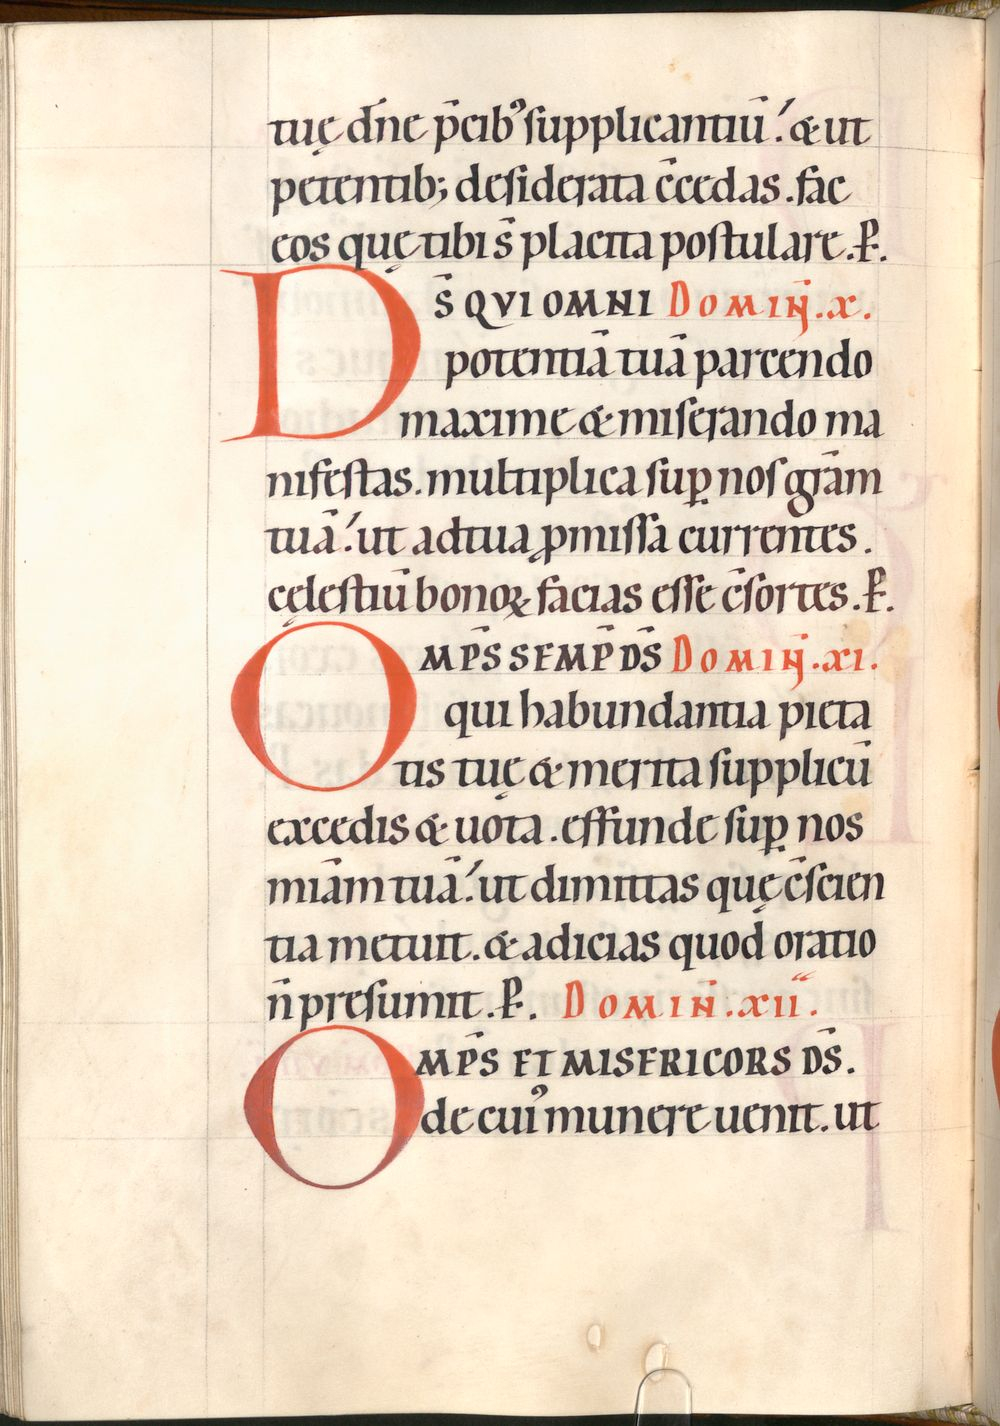 tuę dn̄e p̄cibꝰ supplicantiū. & ut
petentib; desiderata c̄cedas. fac
eos quę tibi s̄ placita postulare. P̄.
DS̄ QVI OMNI DOMIN̄. X.
potentiā tuā parcendo
maxime & miserando ma
nifestas. multiplica sup̱ nos grām
tuā. ut ad tua ꝓmissa currentes.
cęlestiū bonoꝝ facias esse c̄sortes. P̄.
OMP̄S SEMP̄ DS̄ DOMIN̄. XI.
qui habundantia pieta
tis tuę & merita supplicū
excedis & uota. effunde sup̱ nos
miām tuā. ut dimittas quę c̄scien
tia metuit. & adicias quod oratio
n̄ presumit. P̄. DOMIN̄. XII.
OMP̄S ET MISERICORS DS̄.
de cuiꝰ munere uenit. ut